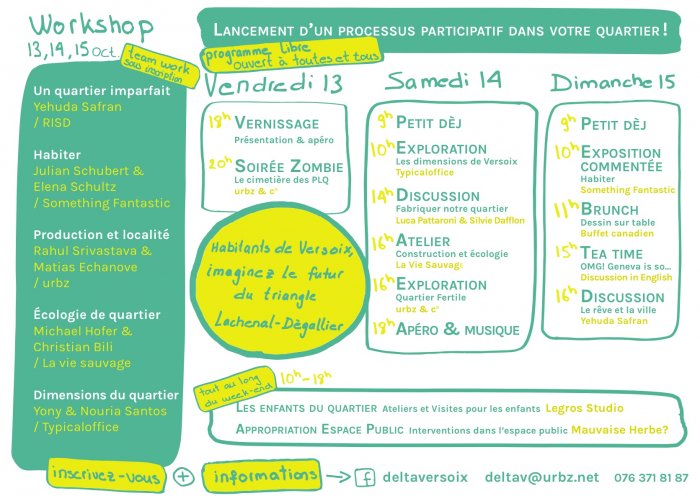 Workshop
13, 14, 15 Oct.
team work
sous inscription
Un quartier imparfait
Yehuda Safran
/ RISD
Habiter
Julian Schubert &
Elena Schultz
/ Something Fantastic
Production et localité
Rahul Srivastava &
Matias Echanove
/ urbz
Écologie de quartier
Michael Hofer &
Christian Bili
/ La vie sauvage
Dimensions du quartier
Yony & Nouria Santos
/ Typicaloffice
Lancement d'un processus participatif dans votre quartier !
programme libre
ouvert à toutes et tous
Vendredi 13
18h Vernissage
Présentation & apéro
20h Soirée Zombie
Le cimetière des PLQ
urbz & c°
Habitants de Versoix,
imaginez le futur
du triangle
Lachenal-Dégallier
Samedi 14
9h Petit dèj
10h Exploration
Les dimensions de Versoix
Typicaloffice
14h Discussion
Fabriquer notre quartier
Luca Pattaroni & Silvie Dafflon
16h Atelier
Construction et écologie
La Vie Sauvage
16h Exploration
Quartier Fertile
urbz & c°
18h Apéro & musique
Dimanche 15
9h Petit dèj
10h Exposition
commentée
Habiter
Something Fantastic
11h Brunch
Dessin sur table
Buffet canadien
15h Tea time
OMG! Geneva is so...
Discussion in English
16h Discussion
Le rêve et la ville
Yehuda Safran
tout au long
du week-end
10h-18h
Les enfants du quartier Ateliers et Visites pour les enfants Legros Studio
Appropriation Espace Public Interventions dans l'espace public Mauvaise Herbe?
inscrivez-vous + informations → f deltaversoix deltav@urbz.net 076 371 81 87